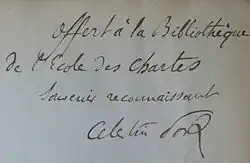 Offert à la Bibliothèque
de l'Ecole des Chartes
Souvenir reconnaissant
Celestin Port